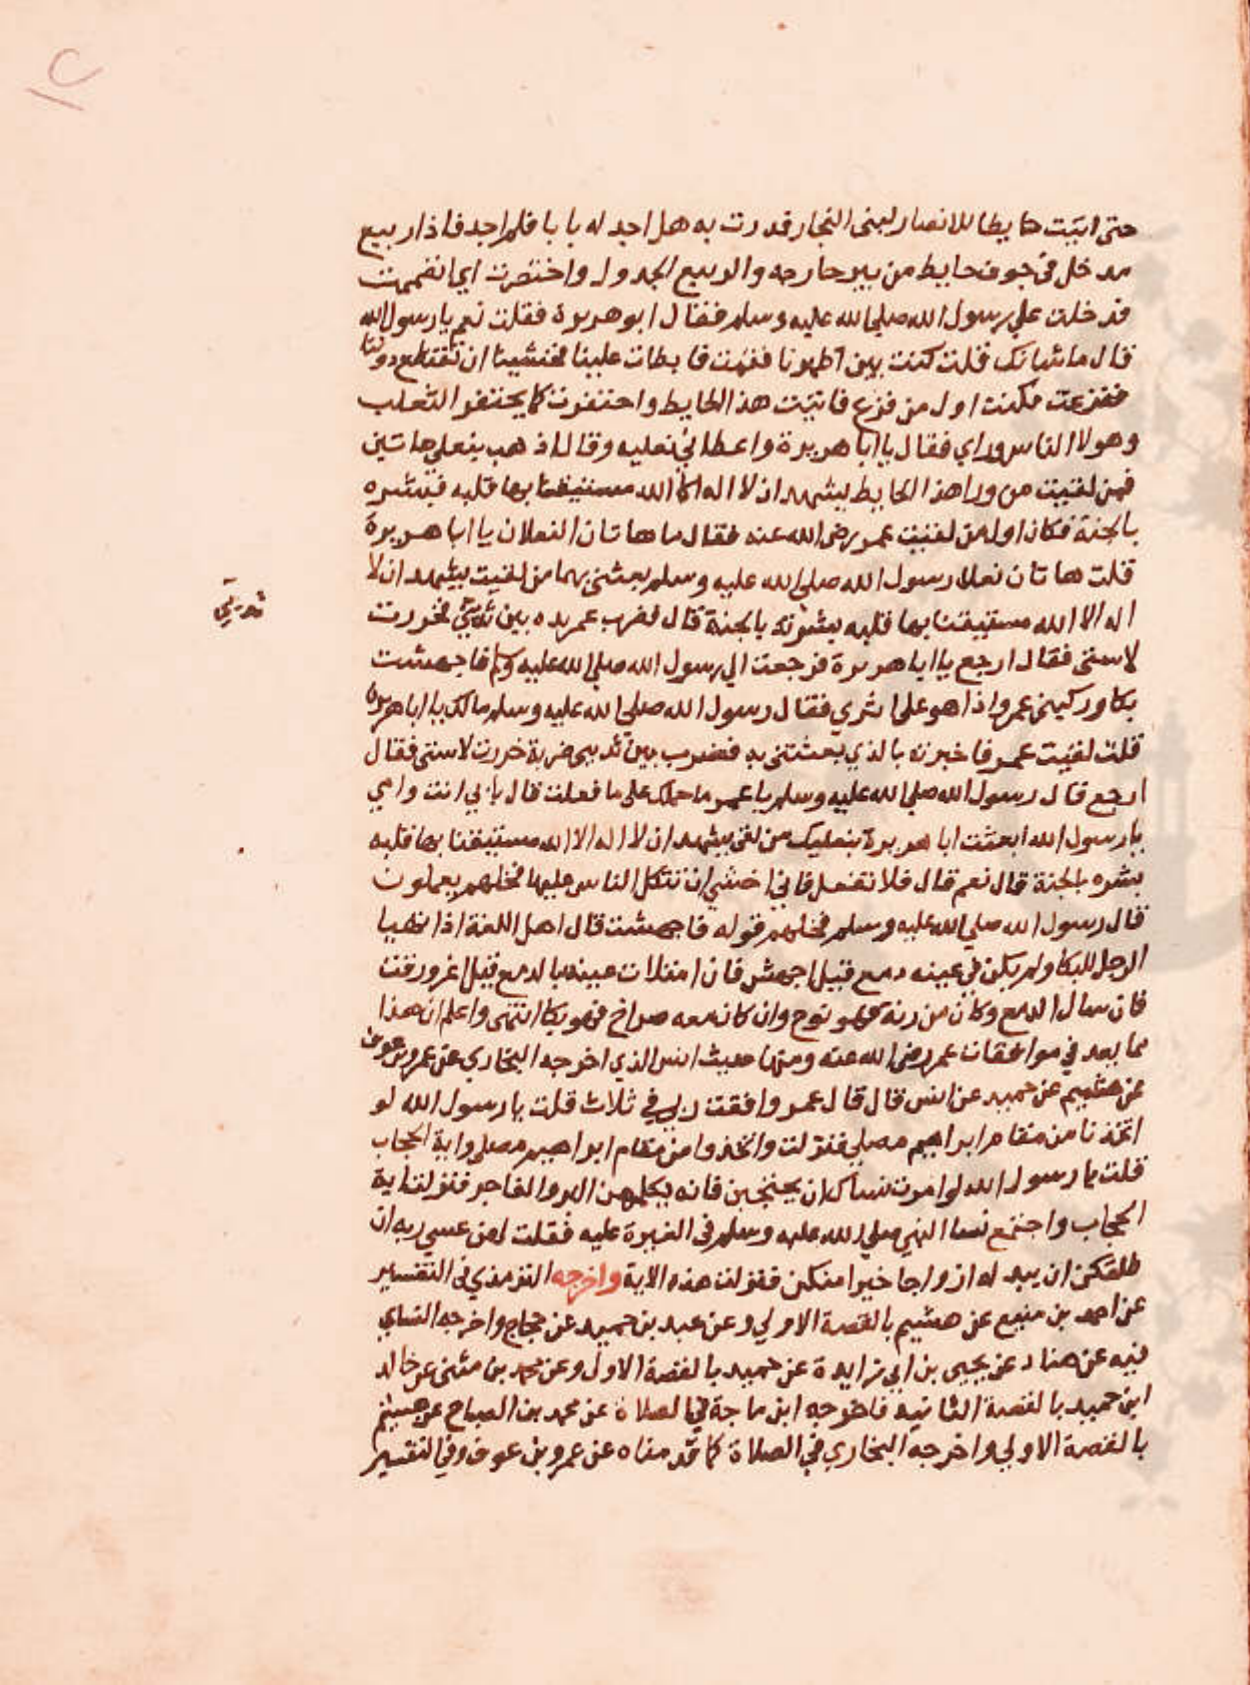 حتى اتيت حايطا للانصار لبنى النجار فدرت به هل اجد له بابا فلم اجد فاذا ربيع
يدخل في جوف حايط من بير خارجه والربيع الجدول واختفزت اي انضممت
فدخلت علي رسول الله صلى الله عليه وسلم فقال ابو هريرة فقلت نعم يا رسول الله
قال ما شانك قلت كنت بين اظهرنا فقمت فابطات علينا فخشينا ان تقتطع دوننا
ففزعت فكنت اول من فزع فاتيت هذا الحايط واحتفزت كما يحتفز الثعلب
وهولا الناس وراي فقال يا ابا هريرة واعطاني نعليه وقال اذهب بنعلي هاتين
فمن لقيت من ورا هذا الحايط يشهد ان لا اله الا الله مستيقنا بها قلبه فبشره
بالجنة فكان اول من لقيت عمر رضي الله عنه فقال ما هاتان النعلان يا ابا هريرة
قلت هاتان نعلا رسول الله صلى الله عليه وسلم بعثني بهما من لقيت يشهد ان لا
اله الا الله مستيقنا بها قلبه بشرته بالجنة قال فضرب عمر يده بين ثديي فخررت
لاستى فقال ارجع يا ابا هريرة فرجعت الي رسول الله صلى الله عليه وسلم فاجهشت
بكا وركبني عمر واذا هو على اثري فقال رسول الله صلى الله عليه وسلم مالك يا ابا هريرة
قلت لقيت عمر فاخبرته بالذي بعثتني به فضرب بين ثديي ضربة خررت لاستى فقال
ارجع قال رسول الله صلى الله عليه وسلم يا عمر ما حملك على ما فعلت قال بابي انت وامي
يا رسول الله ابعثت ابا هريرة بنعليك من لقي يشهد ان لا اله الا الله مستيقنا بها قلبه
بشره بالجنة قال نعم قال فلا تفعل فاني اخشي ان تتكل الناس عليها فخلهم يعملون
قال رسول الله صلى الله عليه وسلم فخلهم قوله فاجهشت قال اهل اللغة اذا تهيا
الرجل للبكا ولم يكن في عينه دمع قيل اجهش فان امتلات عينه بالدمع قيل اغرورقت
فان سال الدمع وكان من رنة فهو نوح وان كان معه صراخ فهو بكا انتهى واعلم ان هذا
مما يعد في موافقات عمر رضي الله عنه ومنها حديث انس الذي اخرجه البخاري عن عمرو بن عوف
عن هشيم عن حميد عن انس قال قال عمر وافقت ربي في ثلاث قلت يا رسول الله لو
اتخذنا من مقام ابراهيم مصلى فنزلت واتخذوا من مقام ابراهيم مصلى واية الحجاب
قلت يا رسول الله لو امرت نساك ان يحتجبن فانه يكلمهن البر والفاجر فنزلت اية
الحجاب واجتمع نسا النبي صلي الله عليه وسلم في الغيرة عليه فقلت لهن عسي ربه ان
طلقكن ان يبدله ازواجا خيرا منكن فنزلت هذه الاية واخرجه الترمذي في التفسير
عن احمد بن منيع عن هشيم بالقصة الاولي وعن عبد بن حميد عن حجاج واخرجه النساي
فيه عن هناد عن يحيى بن ابي زايدة عن حميد بالقصة الاول وعن محمد بن مثنى عن خالد
ابن حميد بالقصة الثانيه فاخرجه ابن ماجة في الصلاة عن محمد بن الصباح عن هشيم
بالقصة الاولي واخرجه البخاري في الصلاة كما قدمناه عن عمرو بن عوف وفي التفسير